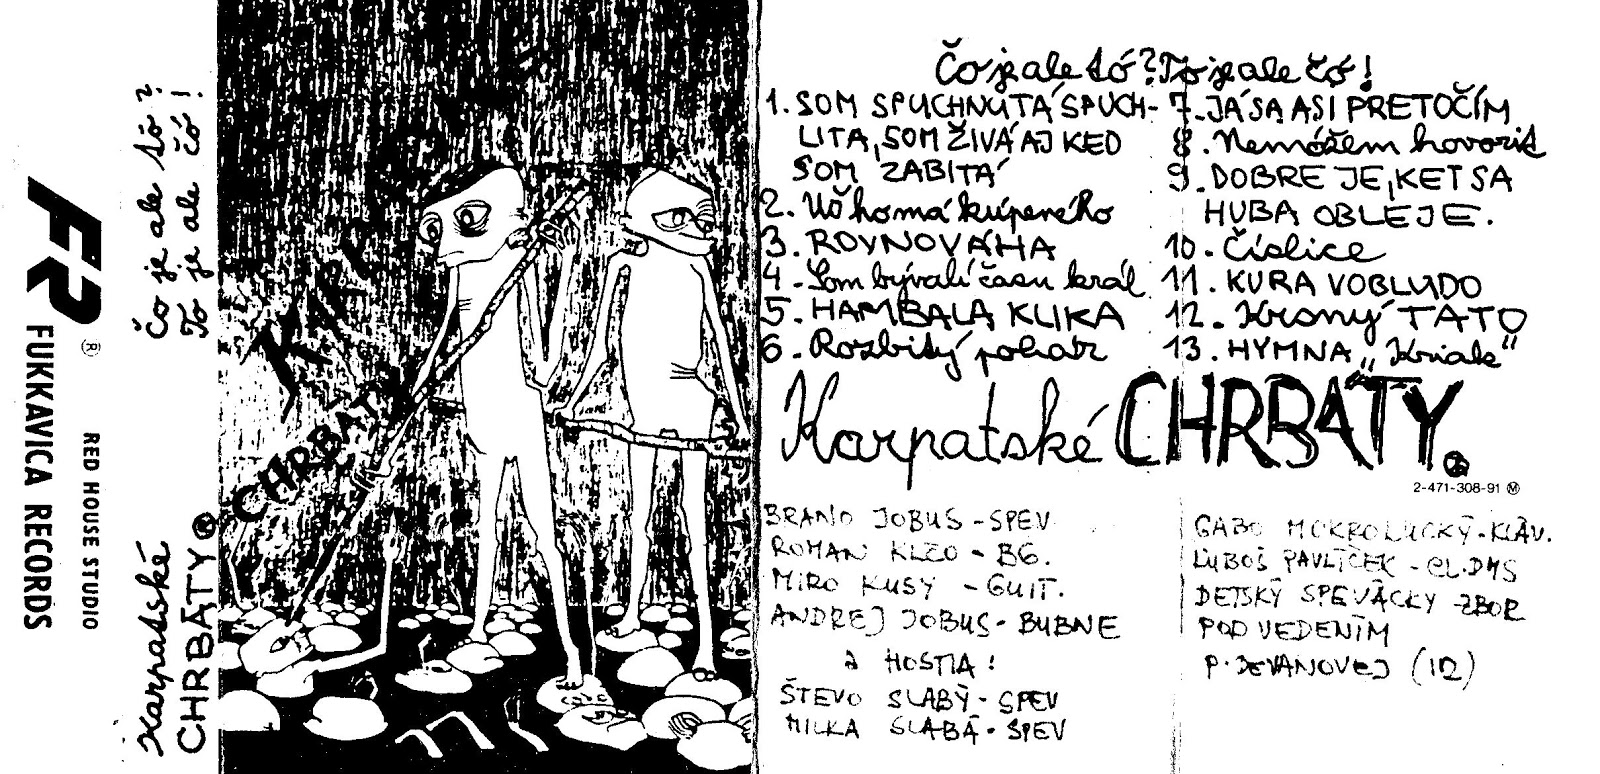 FR ®
FUKKAVICA RECORDS
RED HOUSE STUDIO
Čo je ale tó?
To je ale čó!
Karpatské
CHRBÁTY
KARPATSKÉ
CHRBÁTY
Čo je ale tó? To je ale čó!
1. SOM SPUCHNUTÁ SPUCH-
LITA, SOM ŽIVÁ AJ KED
SOM ZABITÁ
2. Uš ho má kúpeného
3. ROVNOVÁHA
4. Som bývalí času král
5. HAMBALA KLIKA
6. Rozbitý pohár
7. JÁ SA ASI PRETOČÍM
8. Nemóžem hovorit
9. DOBRE JE, KET SA
HUBA OBLEJE.
10. Číslice
11. KURA VOBLUDO
12. Hrony TATO
13. HYMNA „Kriak"
Karpatské CHRBÁTY.
2-471-308-91 Ⓜ
BRAŇO JOBUS - SPEV
ROMAN KLČO - BG.
MIRO KUSÝ - GUIT.
ANDREJ JOBUS - BUBNE
a HOSTIA:
ŠTEVO SLABÝ - SPEV
MILKA SLABÁ - SPEV
GABO MOKROLUCKÝ - KLÁV.
ĽUBOŠ PAVLÍČEK - EL.DMS
DETSKÝ SPEVÁCKY ZBOR
POD VEDENÍM
P. DEVANOVEJ (12)